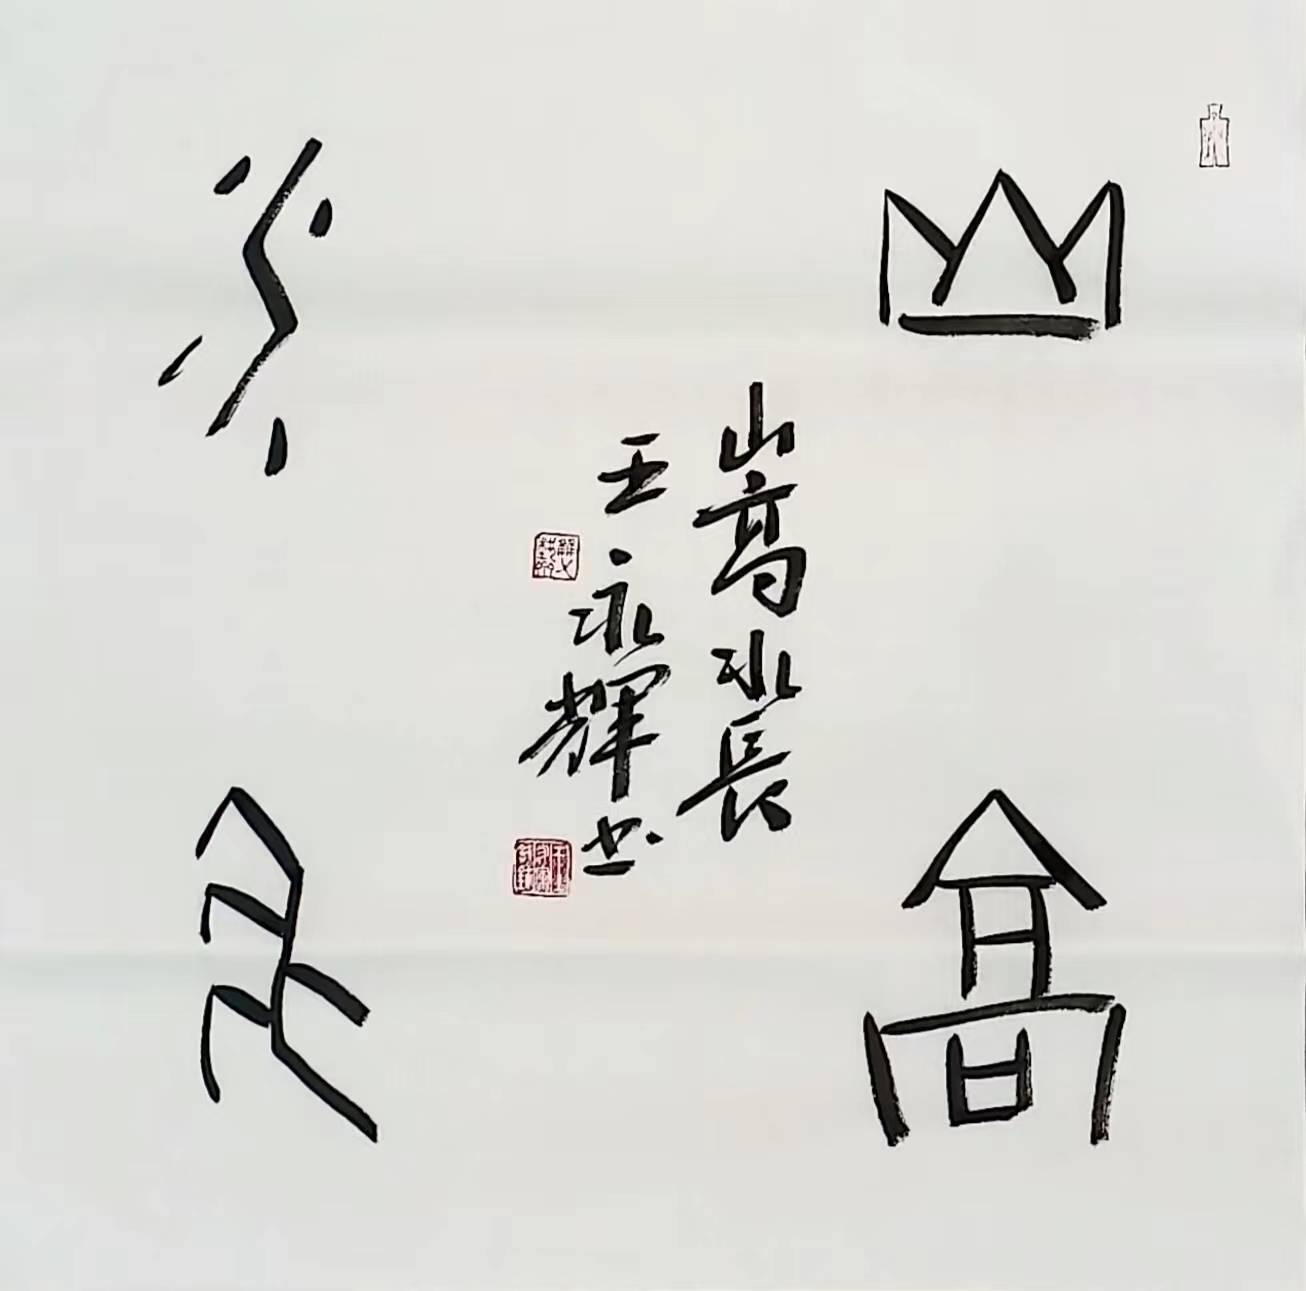 山高
水長
山高水長
王永輝书